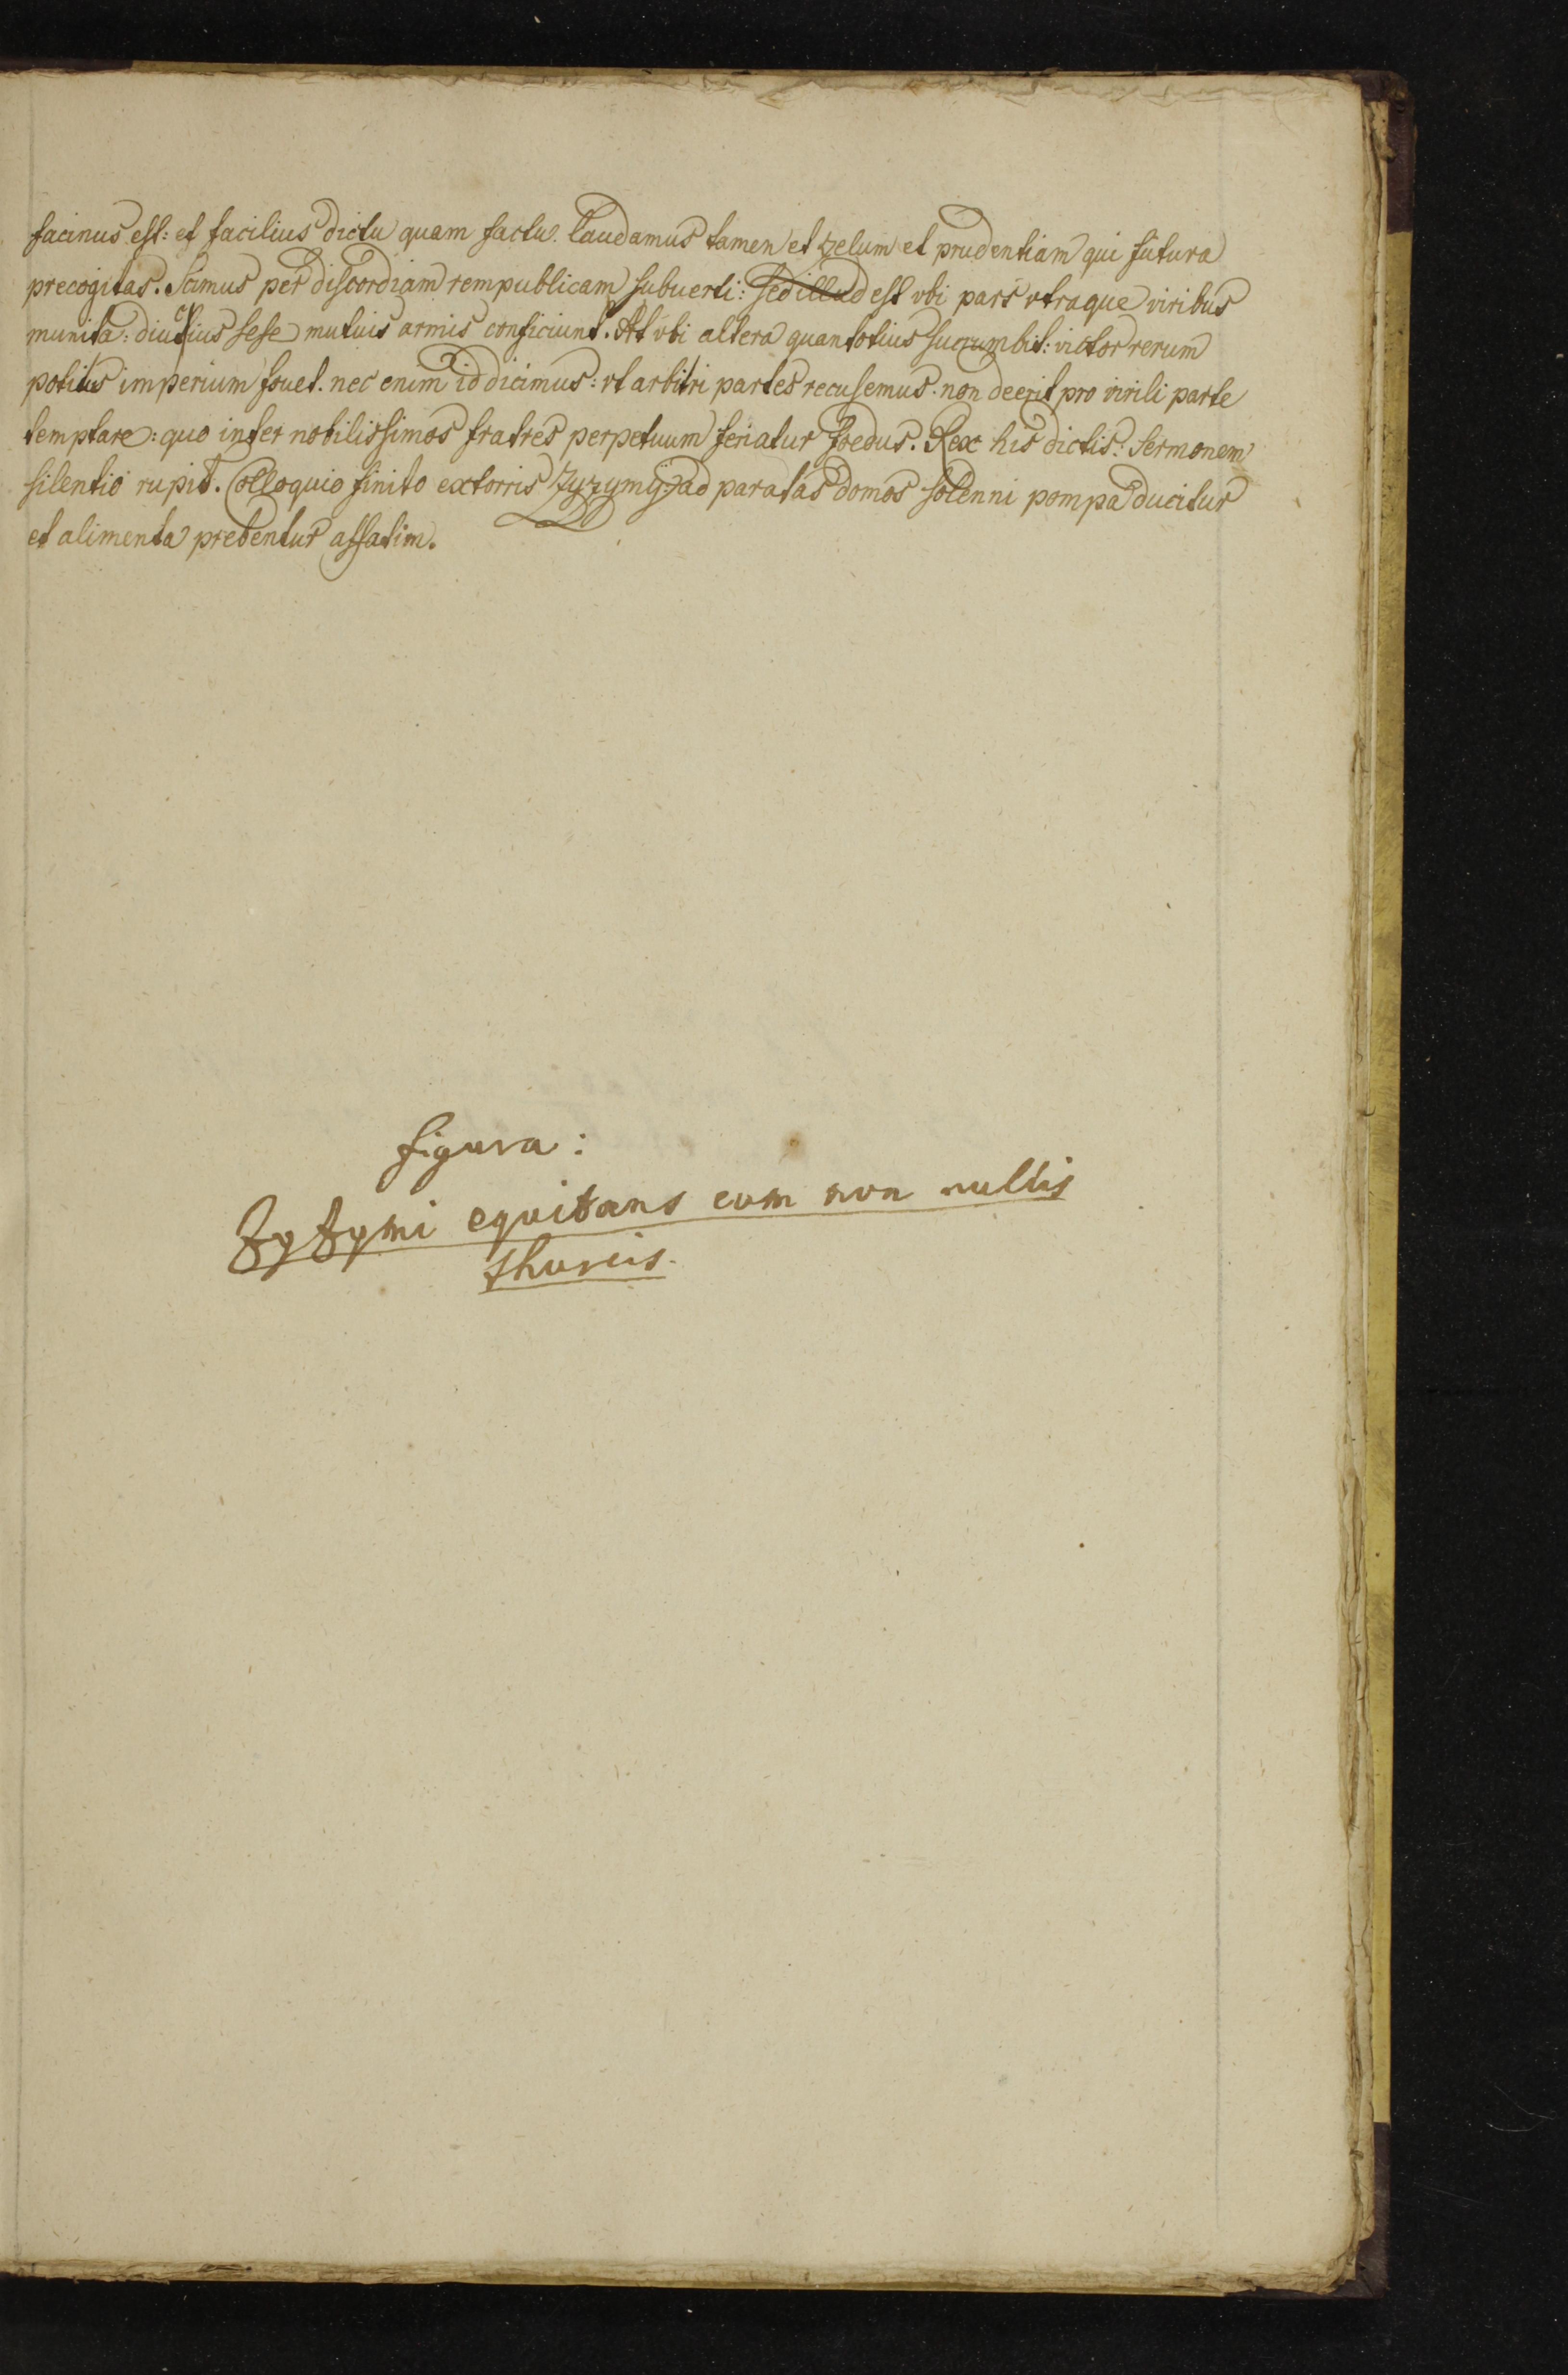 facinus est: et facilius dictu quam factu. Laudamus tamen et zelum et prudentiam qui futura
precogitas. Scimus per discordiam rempublicam subuerti: sed illud est vbi pars vtraque viribus
munita: diutius sese mutuis armis conficiunt. At vbi altera quantotius sucrumbit: victor rerum
potitus imperium fouet. nec enim id dicimus: vt arbitri partes recusemus. non deerit pro virili parte
temptare: quo inter nobilissimos fratres perpetuum feriatur foedus. Rex his dictis: sermonem
silentio rupit. Colloquio finito extorris Zyzymy: ad paratas domos solenni pompa ducitur
et alimenta prebentur affatim.
figura:
Zyzymi equitans cum non nullis
thurcis.